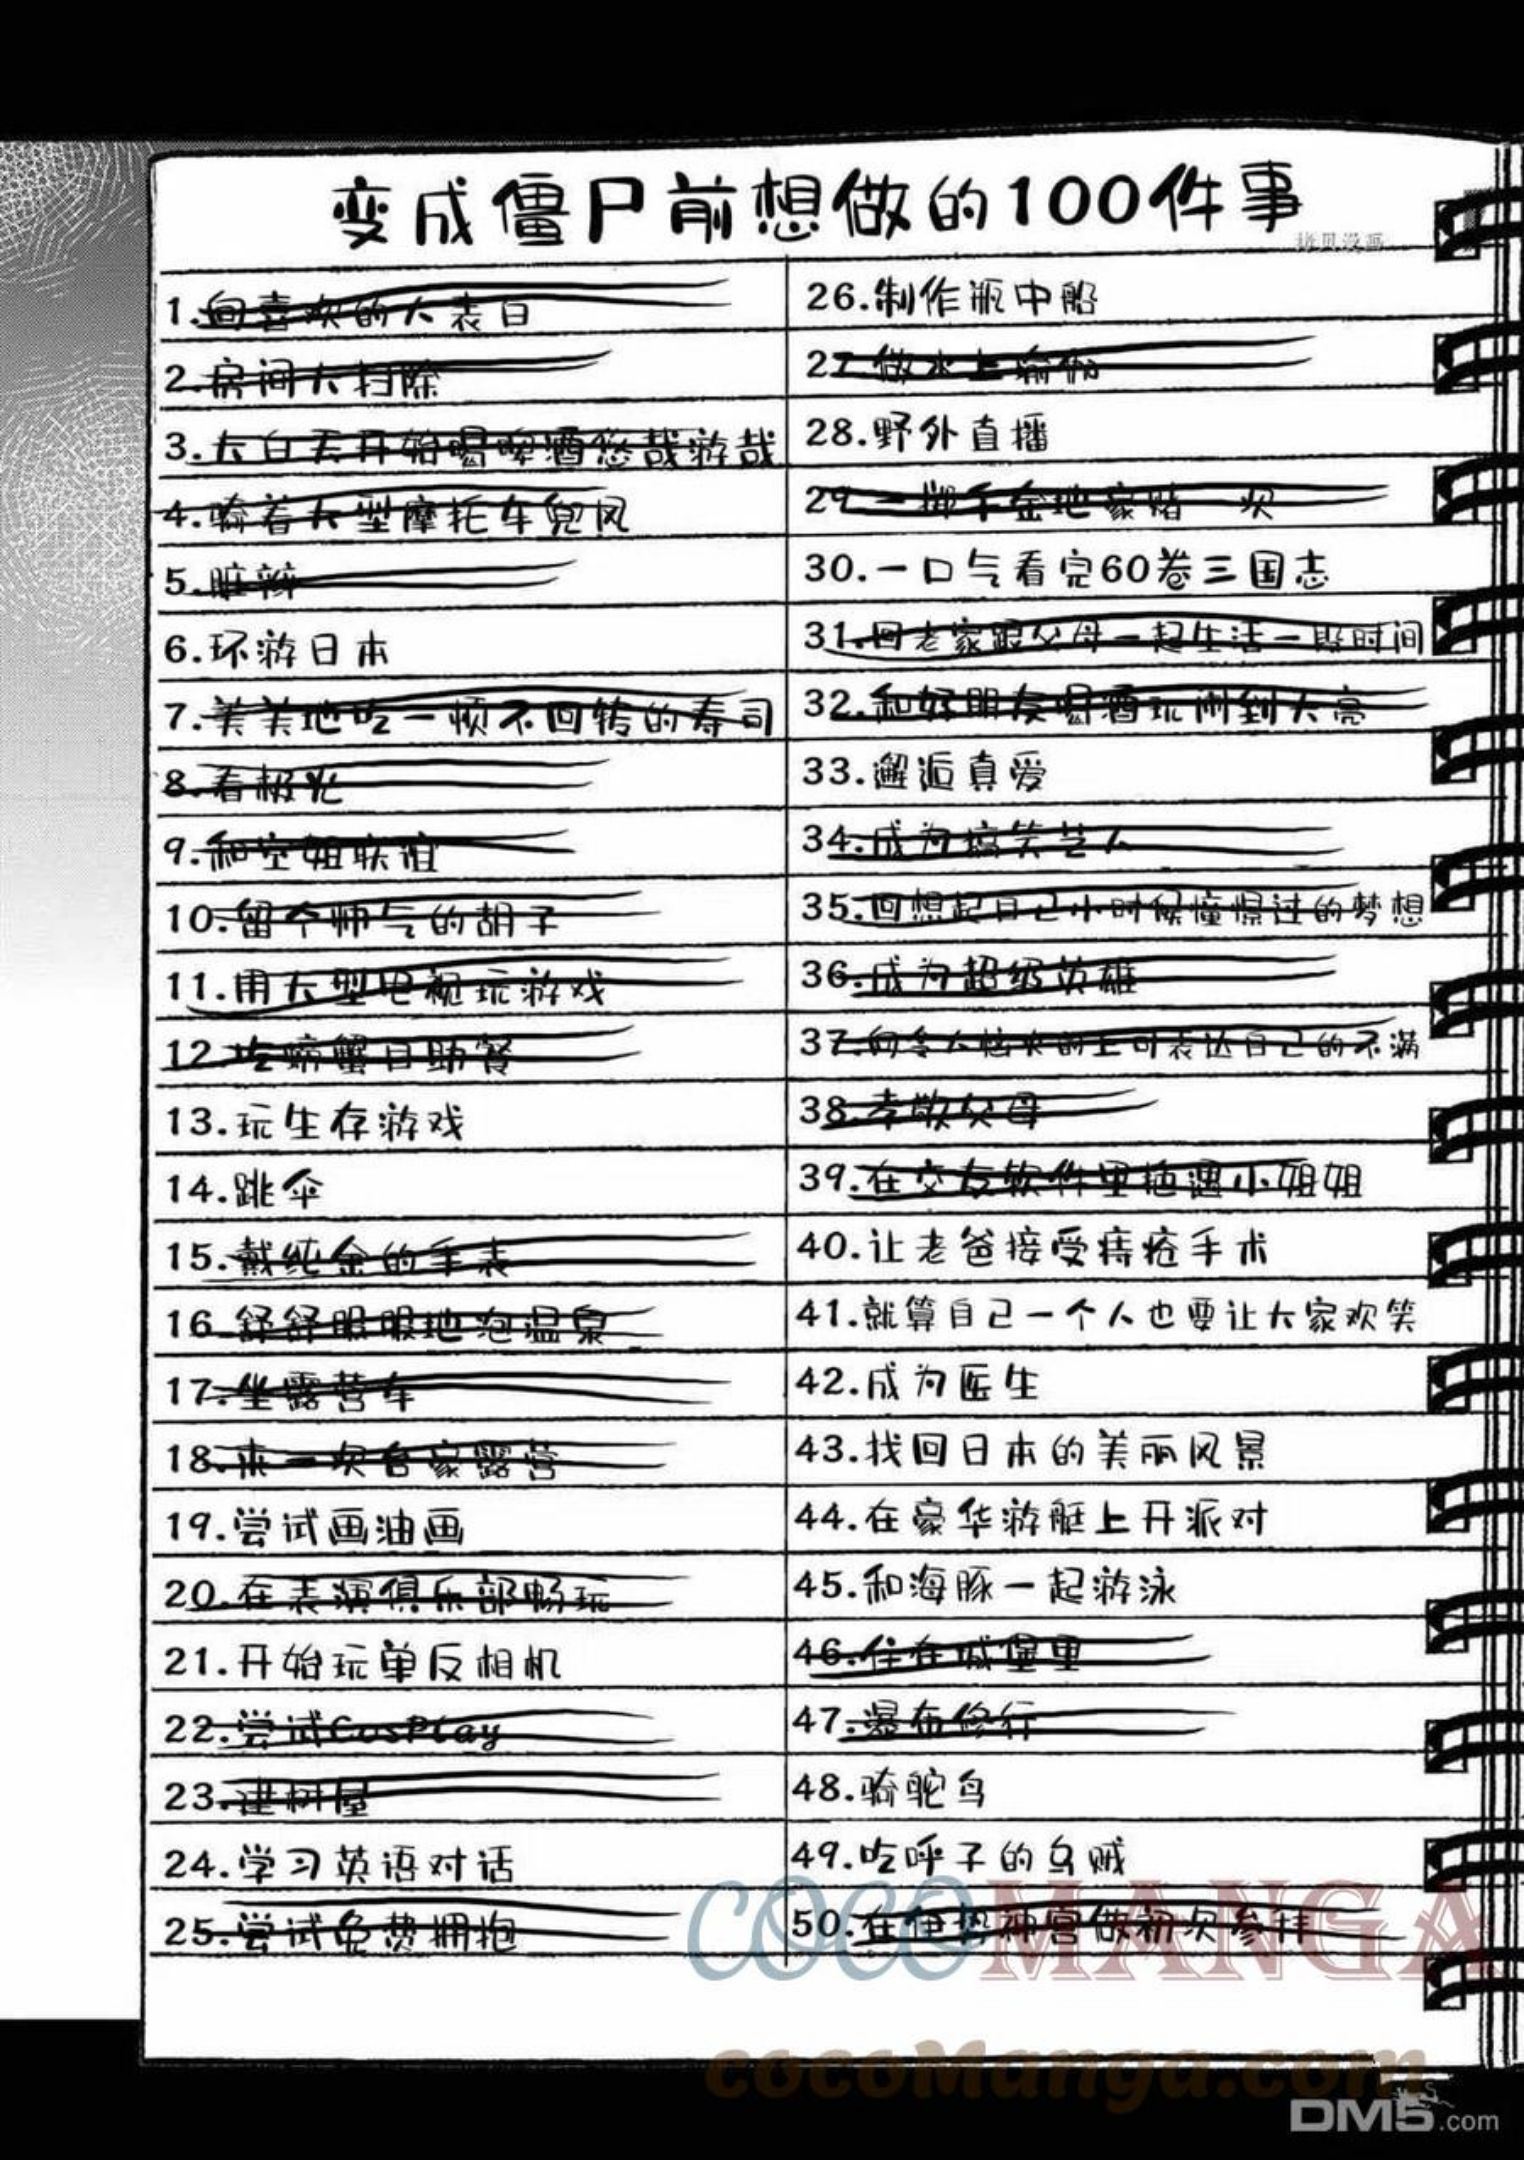 变成僵尸前想做的100件事
拷贝漫画
1.向喜欢的人表白
2.房间大扫除
3.大白天开始喝啤酒悠哉游哉
4.骑着大型摩托车兜风
5.脏辫
6.环游日本
7.美美地吃一顿不回转的寿司
8.看极光
9.和空姐联谊
10.留个帅气的胡子
11.用大型电视玩游戏
12.吃螃蟹自助餐
13.玩生存游戏
14.跳伞
15.戴纯金的手表
16.舒舒服服地泡温泉
17.坐露营车
18.来一次合家露营
19.尝试画油画
20.在表演俱乐部畅玩
21.开始玩单反相机
22.尝试CosPlay
23.建树屋
24.学习英语对话
25.尝试免费拥抱
26.制作瓶中船
27.做水上瑜伽
28.野外直播
29.一掷千金地豪赌一次
30.一口气看完60卷三国志
31.回老家跟父母一起生活一段时间
32.和好朋友喝酒玩闹到天亮
33.邂逅真爱
34.成为搞笑艺人
35.回想起自己小时候憧憬过的梦想
36.成为超级英雄
37.向令人恼火的上司表达自己的不满
38.孝敬父母
39.在交友软件里 遇小姐姐
40.让老爸接受痔疮手术
41.就算自己一个人也要让大家欢笑
42.成为医生
43.找回日本的美丽风景
44.在豪华游艇上开派对
45.和海豚一起游泳
46.住在城堡里
47.瀑布修行
48.骑鸵鸟
49.吃呼子的乌贼
50.在伊势神宫做初次参拜
COCOMANGA
cocoManga.com
DM5.com